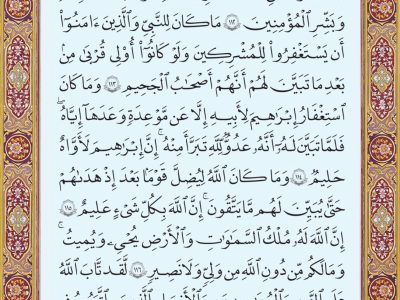 وَبَشِّرِ ٱلْمُؤْمِنِينَ ١١٢ مَا كَانَ لِلنَّبِىِّ وَٱلَّذِينَ ءَامَنُوٓا۟
أَن يَسْتَغْفِرُوا۟ لِلْمُشْرِكِينَ وَلَوْ كَانُوٓا۟ أُو۟لِى قُرْبَىٰ مِنۢ
بَعْدِ مَا تَبَيَّنَ لَهُمْ أَنَّهُمْ أَصْحَٰبُ ٱلْجَحِيمِ ١١٣ وَمَا كَانَ
ٱسْتِغْفَارُ إِبْرَٰهِيمَ لِأَبِيهِ إِلَّا عَن مَّوْعِدَةٍ وَعَدَهَآ إِيَّاهُ
فَلَمَّا تَبَيَّنَ لَهُۥٓ أَنَّهُۥ عَدُوٌّ لِّلَّهِ تَبَرَّأَ مِنْهُ ۚ إِنَّ إِبْرَٰهِيمَ لَأَوَّٰهٌ
حَلِيمٌ ١١٤ وَمَا كَانَ ٱللَّهُ لِيُضِلَّ قَوْمًۢا بَعْدَ إِذْ هَدَىٰهُمْ
حَتَّىٰ يُبَيِّنَ لَهُم مَّا يَتَّقُونَ ۚ إِنَّ ٱللَّهَ بِكُلِّ شَىْءٍ عَلِيمٌ ١١٥
إِنَّ ٱللَّهَ لَهُۥ مُلْكُ ٱلسَّمَٰوَٰتِ وَٱلْأَرْضِ ۖ يُحْىِۦ وَيُمِيتُ ۚ
وَمَا لَكُم مِّن دُونِ ٱللَّهِ مِن وَلِىٍّ وَلَا نَصِيرٍ ١١٦ لَّقَد تَّابَ ٱللَّهُ